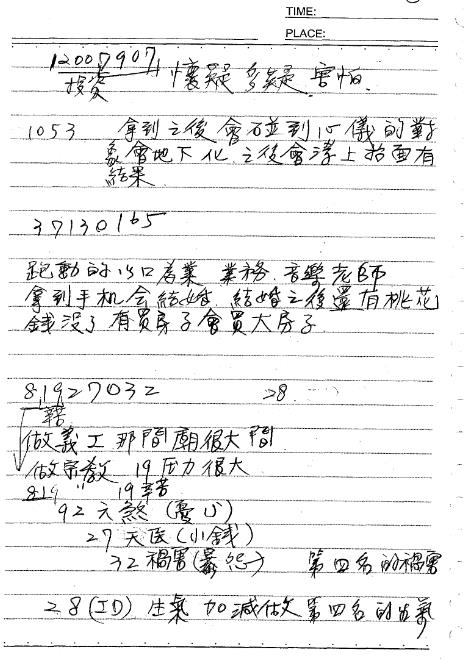 TIME:
PLACE:
12007907
投資 懷疑 多疑 害怕
1053 拿到之後會碰到心儀的對
象會地下化 之後會浮上抬面有
結果
37130165
跑動的以口為業 業務 音樂老師
拿到手机会結婚 結婚之後還有桃花
錢没了有買房子會買大房子
81927032 28
做義工 那間廟很大間
做宗教 19 压力很大
819 " 19
92 六煞 (憂心)
27 天医 (小錢)
32 禍害 第四名的禍害
28 (ID) 生氣 加減做第四名的生氣